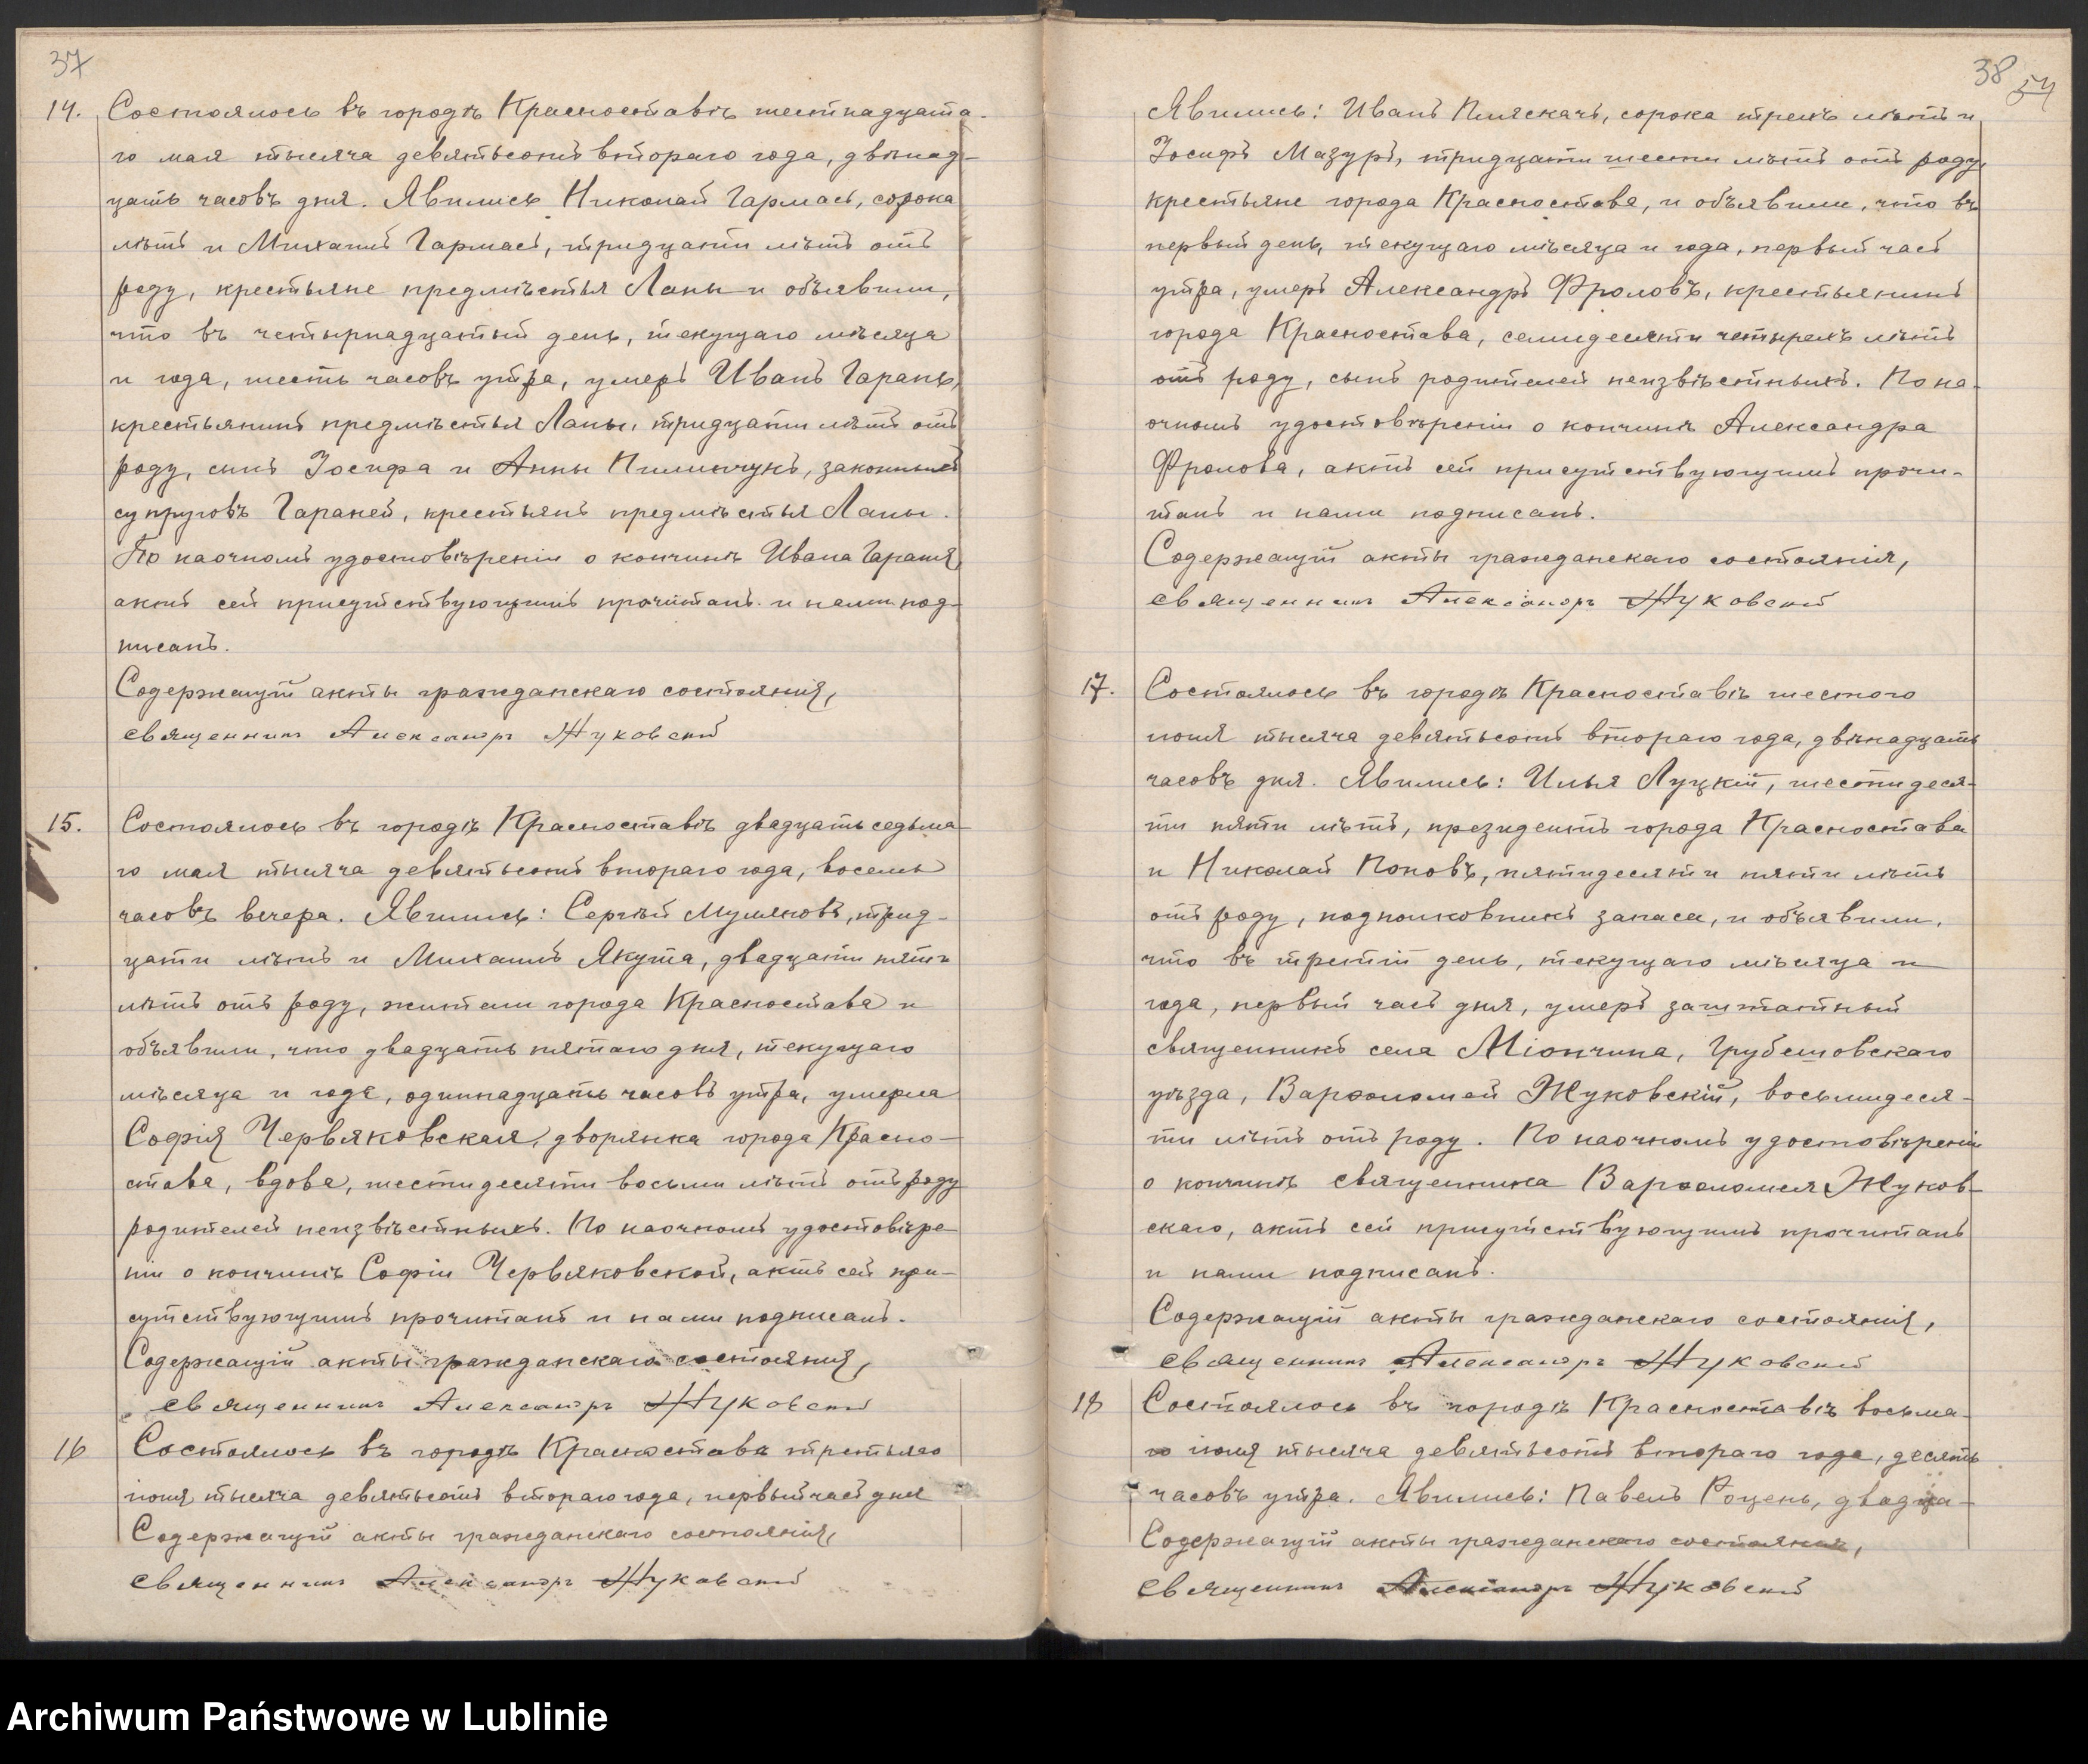 37
14. Состоялось въ городѣ Красноставѣ шестнадцата-
го мая тысяча девятьсотъ второго года, двѣнад-
цать часовъ дня. Явились Николай Гармась, сорока
лѣтъ и Михаилъ Гармась, тридцати лѣтъ отъ
роду, крестьяне предмѣстья Лапы и объявили,
что въ четырнадцатый день, текущаго мѣсяца
и года, шесть часовъ утра, умеръ Иванъ Гарань,
крестьянинъ предмѣстья Лапы, тридцати лѣтъ отъ
роду, сынъ Іосифа и Анны Пилипчукъ, законныхъ
супруговъ Гараней, крестьянъ предмѣстья Лапы.
По наочномъ удостовѣреніи о кончинѣ Ивана Гараня,
актъ сей присутствующимъ прочитанъ и нами под-
писанъ.
Содержащій акты гражданскаго состоянія,
священникъ Александръ Жуковскій
15. Состоялось въ городѣ Красноставѣ двадцать седьма-
го мая тысяча девятьсотъ второго года, восемь
часовъ вечера. Явились: Сергѣй Муляковъ, трид-
цати лѣтъ и Михаилъ Якута, двадцати пяти
лѣтъ отъ роду, жители города Красностава и
объявили, что двадцать пятаго дня, текущаго
мѣсяца и года, одиннадцать часовъ утра, умерла
Софія Червяковская, дворянка города Красно-
става, вдова, шестидесяти восьми лѣтъ отъ роду
родителей неизвѣстныхъ. По наочномъ удостовѣре-
ніи о кончинѣ Софіи Червяковской, актъ сей при-
сутствующимъ прочитанъ и нами подписанъ.
Содержащій акты гражданскаго состоянія,
священникъ Александръ Жуковскій
16 Состоялось въ городѣ Красноставѣ третьяго
іюня тысяча девятьсотъ второго года, первый часъ дня
Содержащій акты гражданскаго состоянія,
священникъ Александръ Жуковскій
38 54
Явились: Иванъ Пляскачъ, сорока трехъ лѣтъ и
Іосифъ Мазуръ, тридцати шести лѣтъ отъ роду,
крестьяне города Красностава, и объявили, что въ
первый день, текущаго мѣсяца и года, первый часъ
утра, умеръ Александръ Фроловъ, крестьянинъ
города Красностава, семидесяти четырехъ лѣтъ
отъ роду, сынъ родителей неизвѣстныхъ. По на-
очномъ удостовѣреніи о кончинѣ Александра
Фролова, актъ сей присутствующимъ прочи-
танъ и нами подписанъ.
Содержащій акты гражданскаго состоянія,
священникъ Александръ Жуковскій
17. Состоялось въ городѣ Красноставѣ шестого
іюня тысяча девятьсотъ второго года, двѣнадцать
часовъ дня. Явились: Илья Луцкій, шестидеся-
ти пяти лѣтъ, президентъ города Красностава
и Николай Поповъ, пятидесяти пяти лѣтъ
отъ роду, подполковникъ запаса, и объявили,
что въ третій день, текущаго мѣсяца и
года, первый часъ дня, умеръ заштатный
священникъ села Міончина, Грубешовскаго
уѣзда, Варѳоломей Жуковскій, восьмидеся-
ти лѣтъ отъ роду. По наочномъ удостовѣреніи
о кончинѣ священника Варѳоломея Жуков-
скаго, актъ сей присутствующимъ прочитанъ
и нами подписанъ.
Содержащій акты гражданскаго состоянія,
священникъ Александръ Жуковскій
18 Состоялось въ городѣ Красноставѣ восьма-
го іюня тысяча девятьсотъ второго года, десять
часовъ утра. Явились: Павелъ Роцень, двадца-
Содержащій акты гражданскаго состоянія,
священникъ Александръ Жуковскій
Archiwum Państwowe w Lublinie